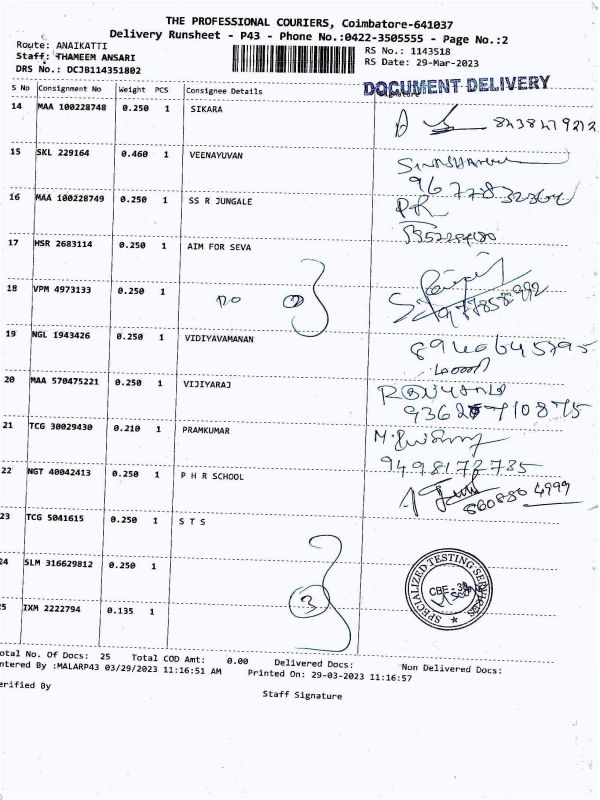 THE PROFESSIONAL COURIERS, Coimbatore-641037
Delivery Runsheet - P43 - Phone No.:0422-3505555 - Page No.:2
Route: ANAIKATTI
RS No.: 1143518
Staff: THAMEEM ANSARI
RS Date: 29-Mar-2023
DRS No.: DCJB114351802
DOCUMENT DELIVERY
S No Consignment No Weight PCS Consignee Details Signature
14 MAA 100228748 0.250 1 SIKARA
15 SKL 229164 0.460 1 VEENAYUVAN
16 MAA 100228749 0.250 1 SS R JUNGALE
17 HSR 2683114 0.250 1 AIM FOR SEVA
18 VPM 4973133 0.250 1
19 NGL 1943426 0.250 1 VIDIYAVAMANAN
20 MAA 570475221 0.250 1 VIJIYARAJ
21 TCG 30029430 0.210 1 PRAMKUMAR
9498172735
22 NGT 40042413 0.250 1 P H R SCHOOL
23 TCG 5041615 0.250 1 S T S
24 SLM 316629812 0.250 1
SPECIALIZED TESTING SERVICES
3
25 IXM 2222794 0.135 1
otal No. Of Docs: 25 Total COD Amt: 0.00 Delivered Docs: Non Delivered Docs:
ntered By :MALARP43 03/29/2023 11:16:51 AM Printed On: 29-03-2023 11:16:57
erified By
Staff Signature